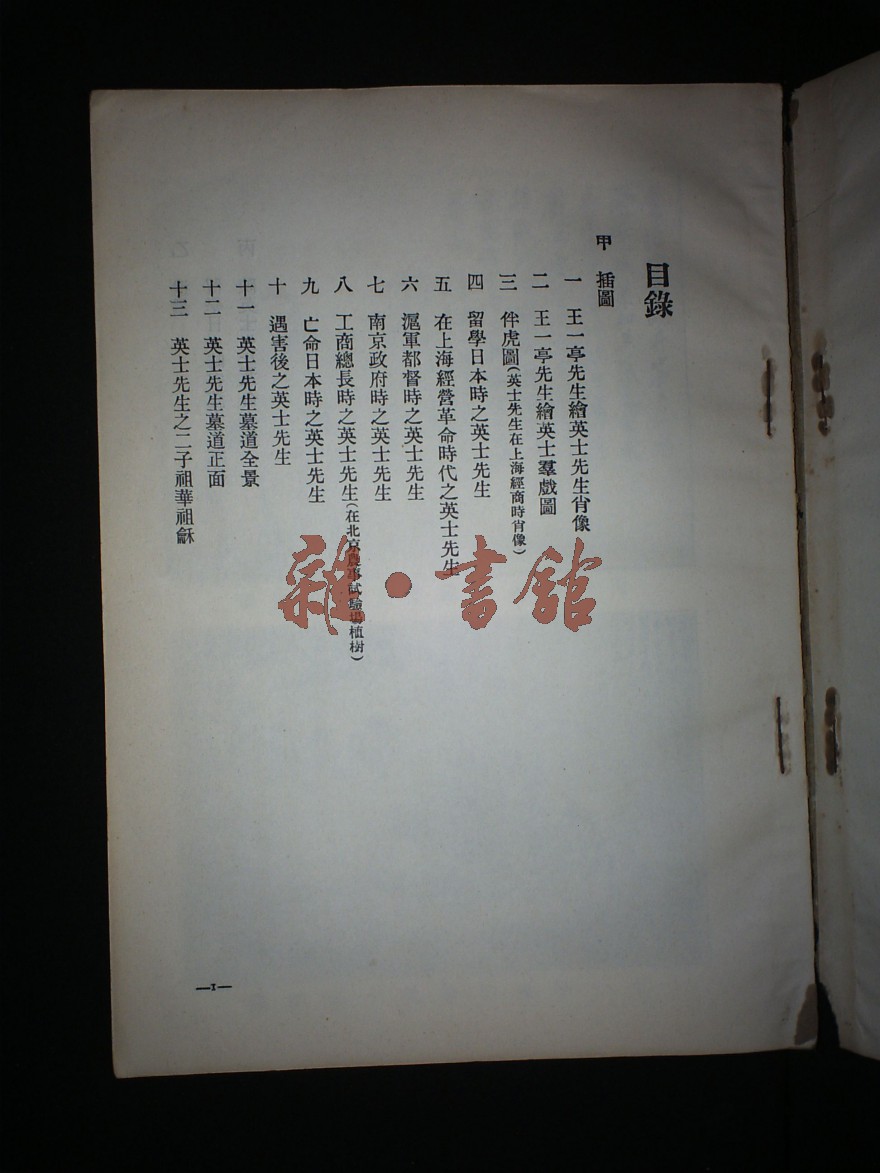 目錄
甲 插圖
一 王一亭先生繪英士先生肖像
二 王一亭先生繪英士羣戲圖
三 伴虎圖(英士先生在上海經商時肖像)
四 留學日本時之英士先生
五 在上海經營革命時代之英士先生
六 滬軍都督時之英士先生
七 南京政府時之英士先生
八 工商總長時之英士先生(在北京農事試驗場植樹)
九 亡命日本時之英士先生
十 遇害後之英士先生
十一 英士先生墓道全景
十二 英士先生墓道正面
十三 英士先生之二子祖華祖龢
—1—
雜·書館